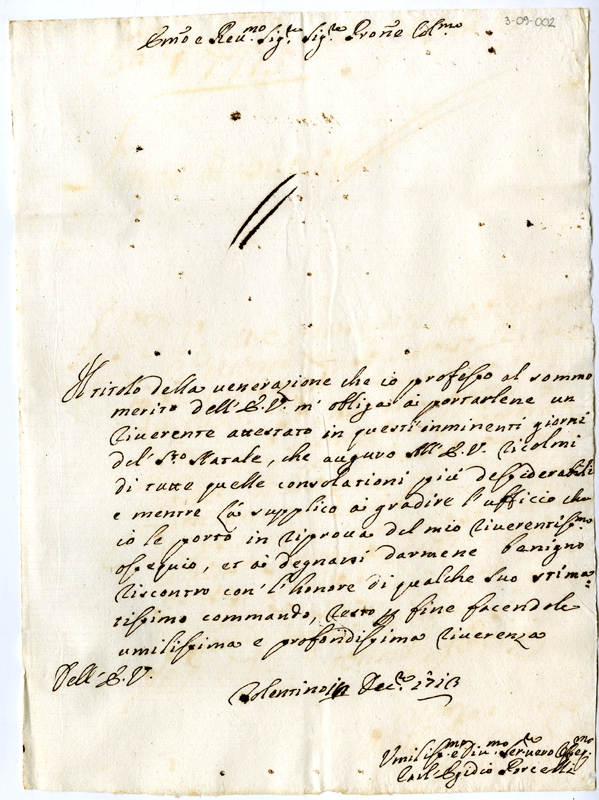 3-09-002
Emo e Revmo Sigre Sigre Prone Colmo
Il titolo della venerazione che io professo al sommo
merito dell'E.V. m'obliga à portarlene un
riverente attestato in questi imminenti giorni
del Sto Natale, che auguro All'E.V. ricolmi
di tutte quelle consolationi più dessiderabili
e mentre la supplico à gradire l'ufficio che
io le porto in riprova del mio riverentissmo
ossequio, et à degnarsi darmene benigno
riscontro con l'honore di qualche suo stima-
tissimo commando, resto per fine facendole
umilissima e profondissima riverenza
Dell'E.V.
Tolentino Decre 1713
Umilissmo Divmo Serre vero
Egidio Porcelli